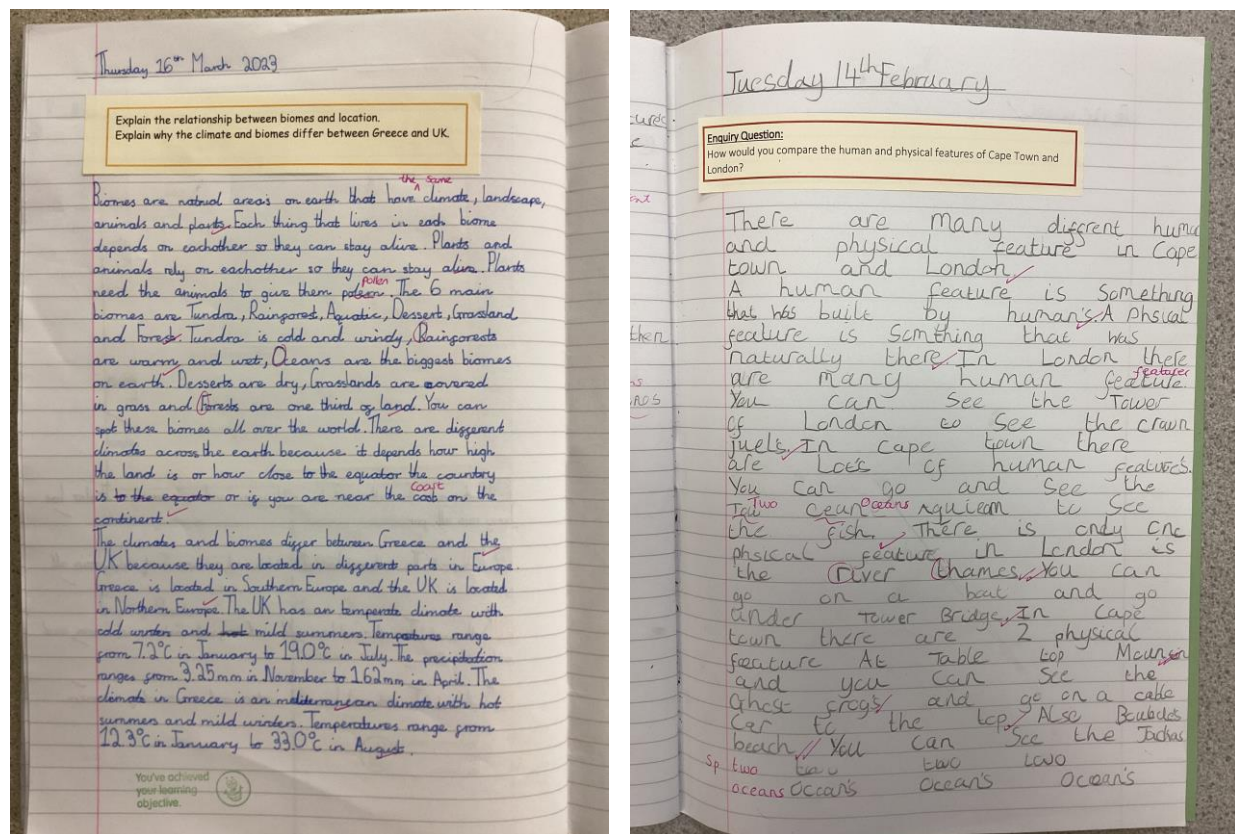 Thursday 16th March 2023
Explain the relationship between biomes and location.
Explain why the climate and biomes differ between Greece and UK.
the same
Biomes are natrual area's on earth that have climate, landscape,
animals and plants. Each thing that lives in each biome
depends on eachother so they can stay alive. Plants and
animals rely on eachother so they can stay alive. Plants
pollen
need the animals to give them The 6 main
biomes are Tundra, Rainforest, Aquatic, Dessert, Grassland
and Forest. Tundra is cold and windy, Rainforests
are warm and wet, Oceans are the biggest biomes
on earth. Desserts are dry, Grasslands are covered
in grass and Forests are one third of land. You can
spot these biomes all over the world. There are different
climates across the earth because it depends how high
the land is or how close to the equator the country
coast
is to the equator or if you are near the on the
continent.
The climates and biomes differ between Greece and the
UK because they are located in different parts in Europe.
Greece is located in Southern Europe and the UK is located
in Northern Europe. The UK has an temperate climate with
cold winters and hot mild summers. Tempratures range
from 7.2°C in January to 19.0°C in July. The precipitation
ranges from 3.25mm in November to 162mm in April. The
climate in Greece is an mediterranean climate with hot
summers and mild winters. Temperatures range from
12.3°C in January to 33.0°C in August.
You've achieved
your learning
objective.
Tuesday 14th February
Enquiry Question:
How would you compare the human and physical features of Cape Town and
London?
There are many diffrent human
and physical feature in Cape
town and London
A human feature is Something
that was built by human's. A Phsical
feature is Somthing that was
naturally there. In London there
are many human feature.
features
You can see the Tower
of London to see the crown
juels. In Cape town there
are Lot's of human feature's.
You can go and see the
Two Oceans
to see
the fish. There is only one
phsical feature in London is
the river thames. You can
go on a boat and go
under Tower Bridge. In Cape
town there are 2 physical
feature At Table top
and you can see the
Ghost frogs and go on a cable
Car to the top. Also
beach. You can see the
Sp two two two
oceans Ocean's Ocean's Ocean's
then